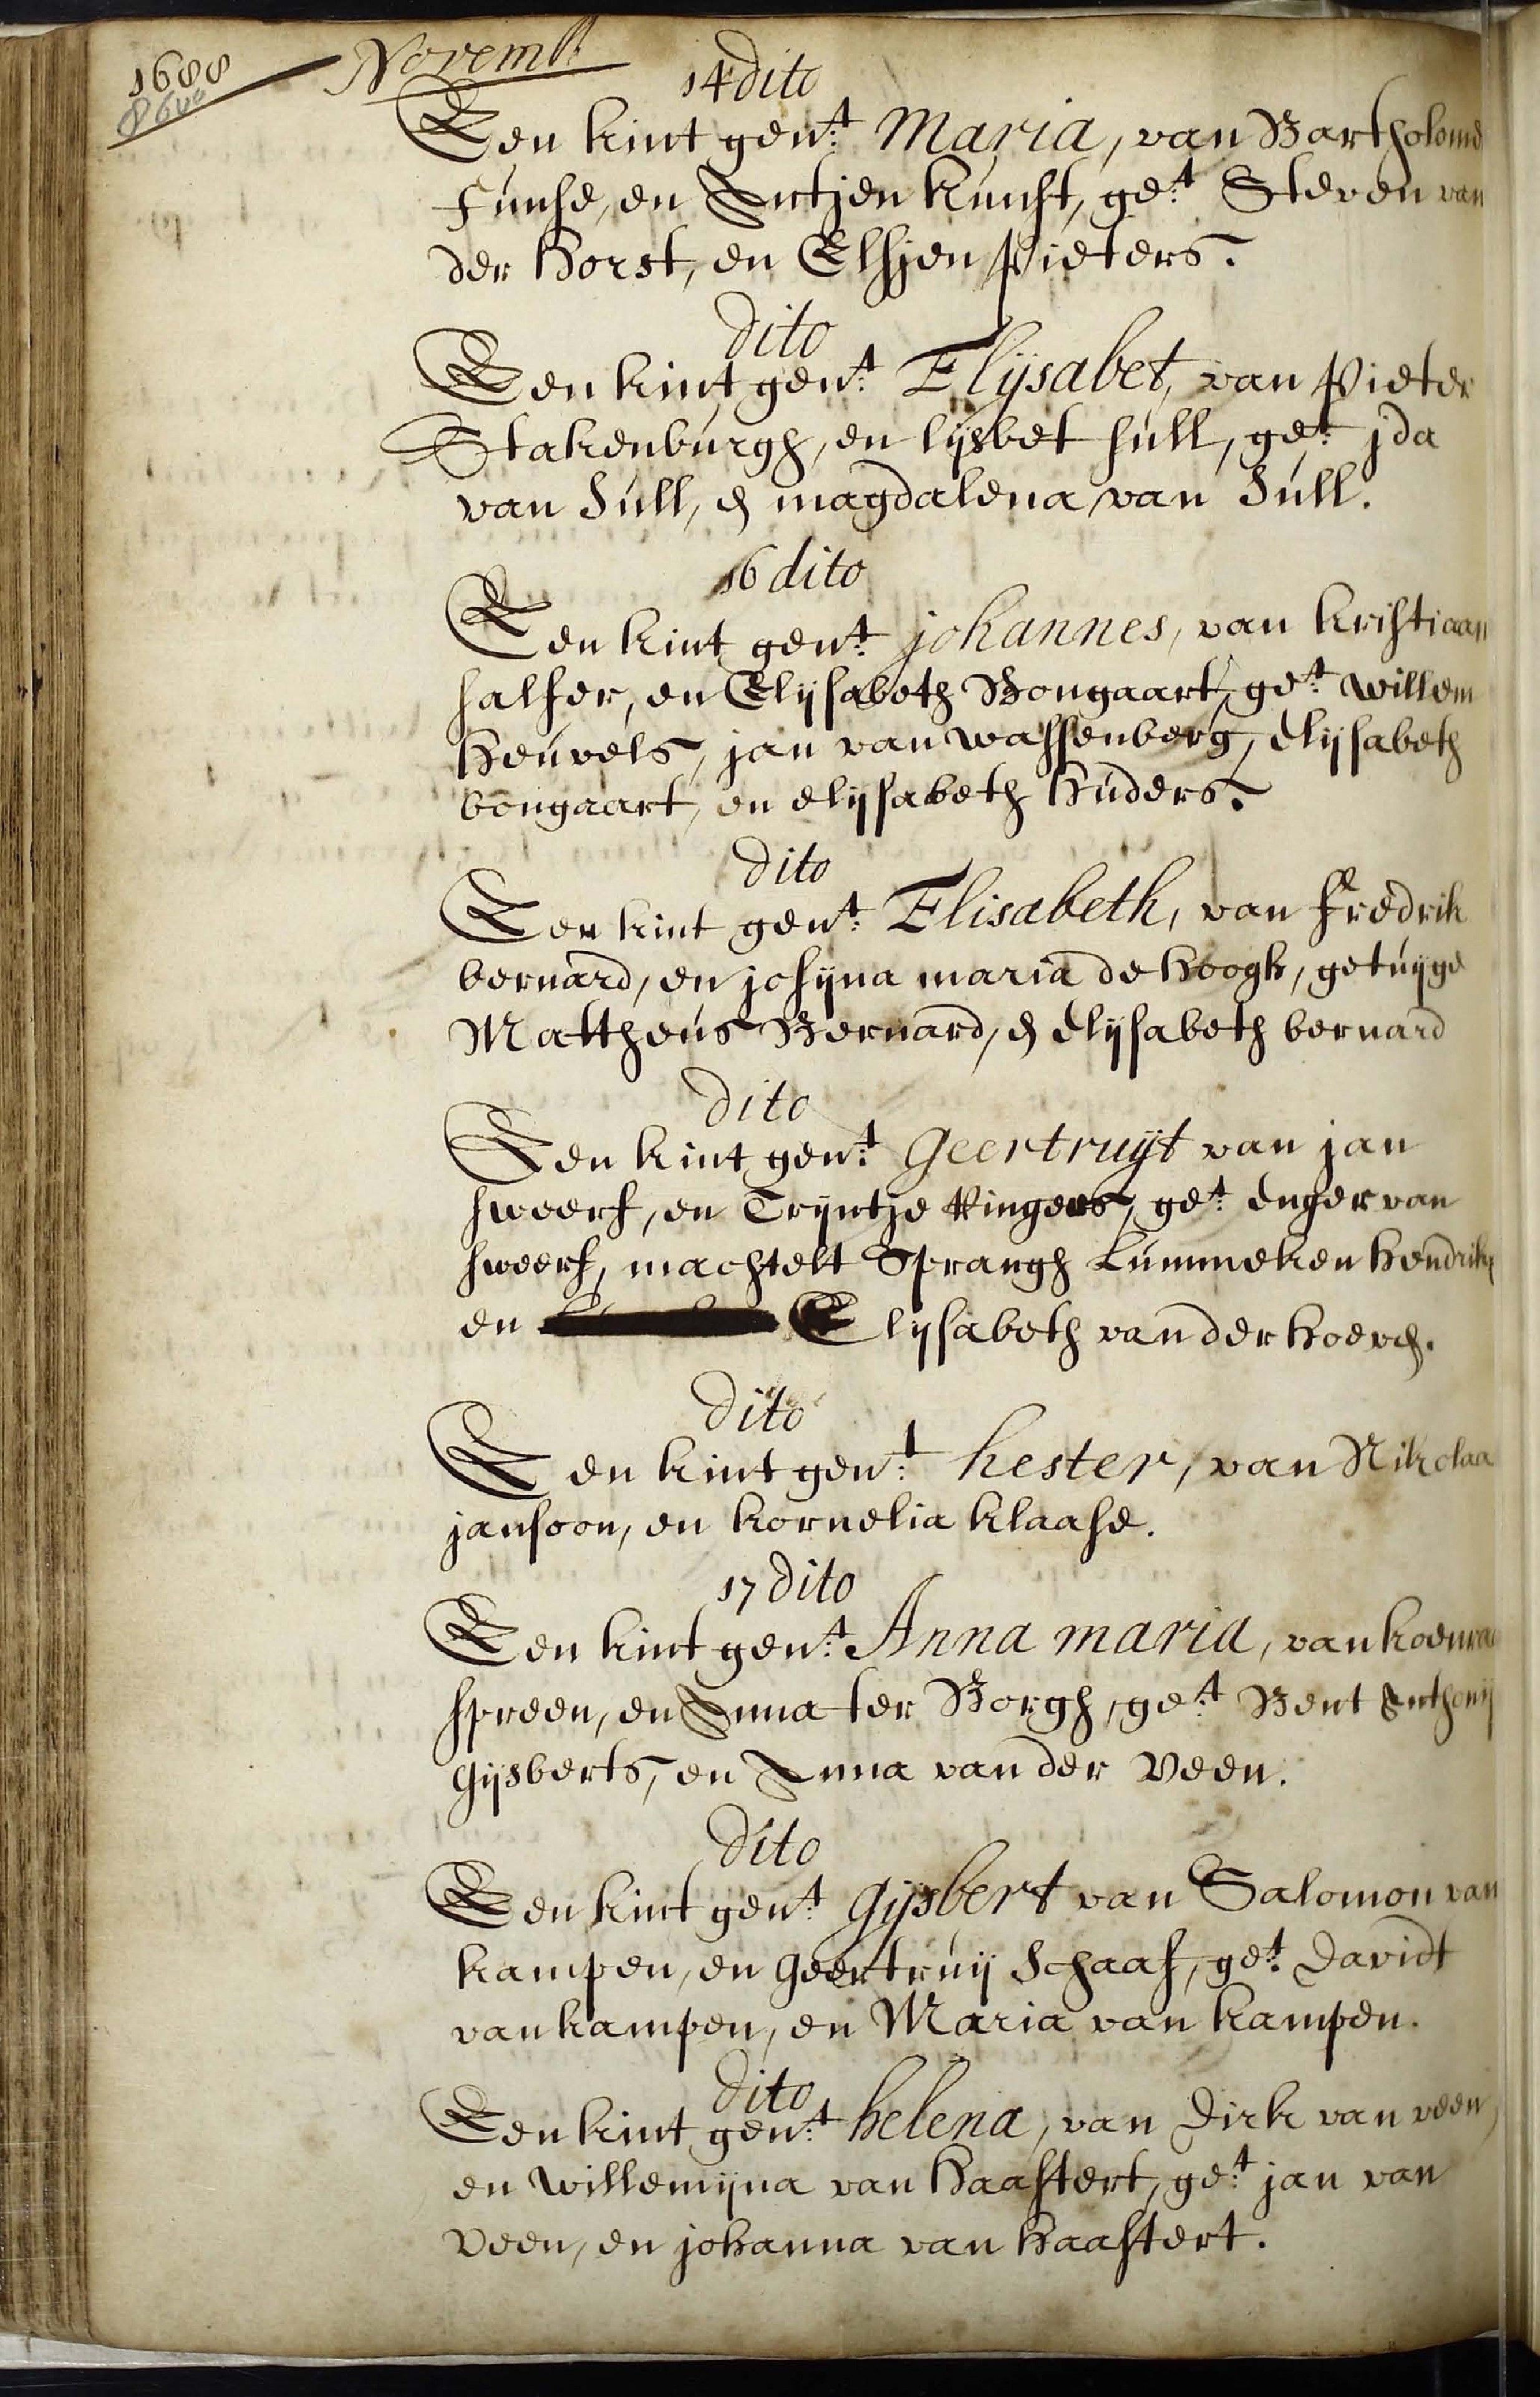 1688
Novemb
14 dito
Een kint gen:t Maria, van Bartholome
Funse, en Antjen kunst, ge:t Steven van
der Horst, en Elsjen Pieters.
dito
Een kint gen:t Elijsabet, van Pieter
Stakenburgh, en lijsbet sull, ge:t jda
van Sull, en magdalena van Sull.
16 dito
Een kint gen:t johannes, van kristiaan
halfer, en Elijsabeth Bongaart, ge:t willem
Heuvels, jan van wassenberg, elijsabeth
bongaart, en elijsabeth Huders.
dito
Een kint gen:t Elisabeth, van Fredrik
bernard, en josijna maria de Hoogh, getuijge
Mattheus Bernard, en elijsabeth bernard
dito
Een kint gen:t Geertruijt van jan
sweers, en Trijntje Ringers, ge:t enger van
sweers, machtelt Sprangh Lummeken Hendrik
en Elijsabeth van der Hoeve.
dito
Een kint gen:t hester, van Nikolaa
jansoon, en kornelia klaase.
17 dito
Een kint gen:t Anna maria, van koenra
spreen, en Anna ter Borgh, ge:t Bent Anthonij
Gijsberts, en Anna van der Veen.
dito
Een kint gen:t Gijsbert van Salomon van
kampen, en Geertruij Schaaf, ge:t Davidt
van kampen, en Maria van kampen.
dito
Een kint gen:t helena, van Dirk van veen,
en willemijna van Haastert, ge:t jan van
Veen, en johanna van Haastert.